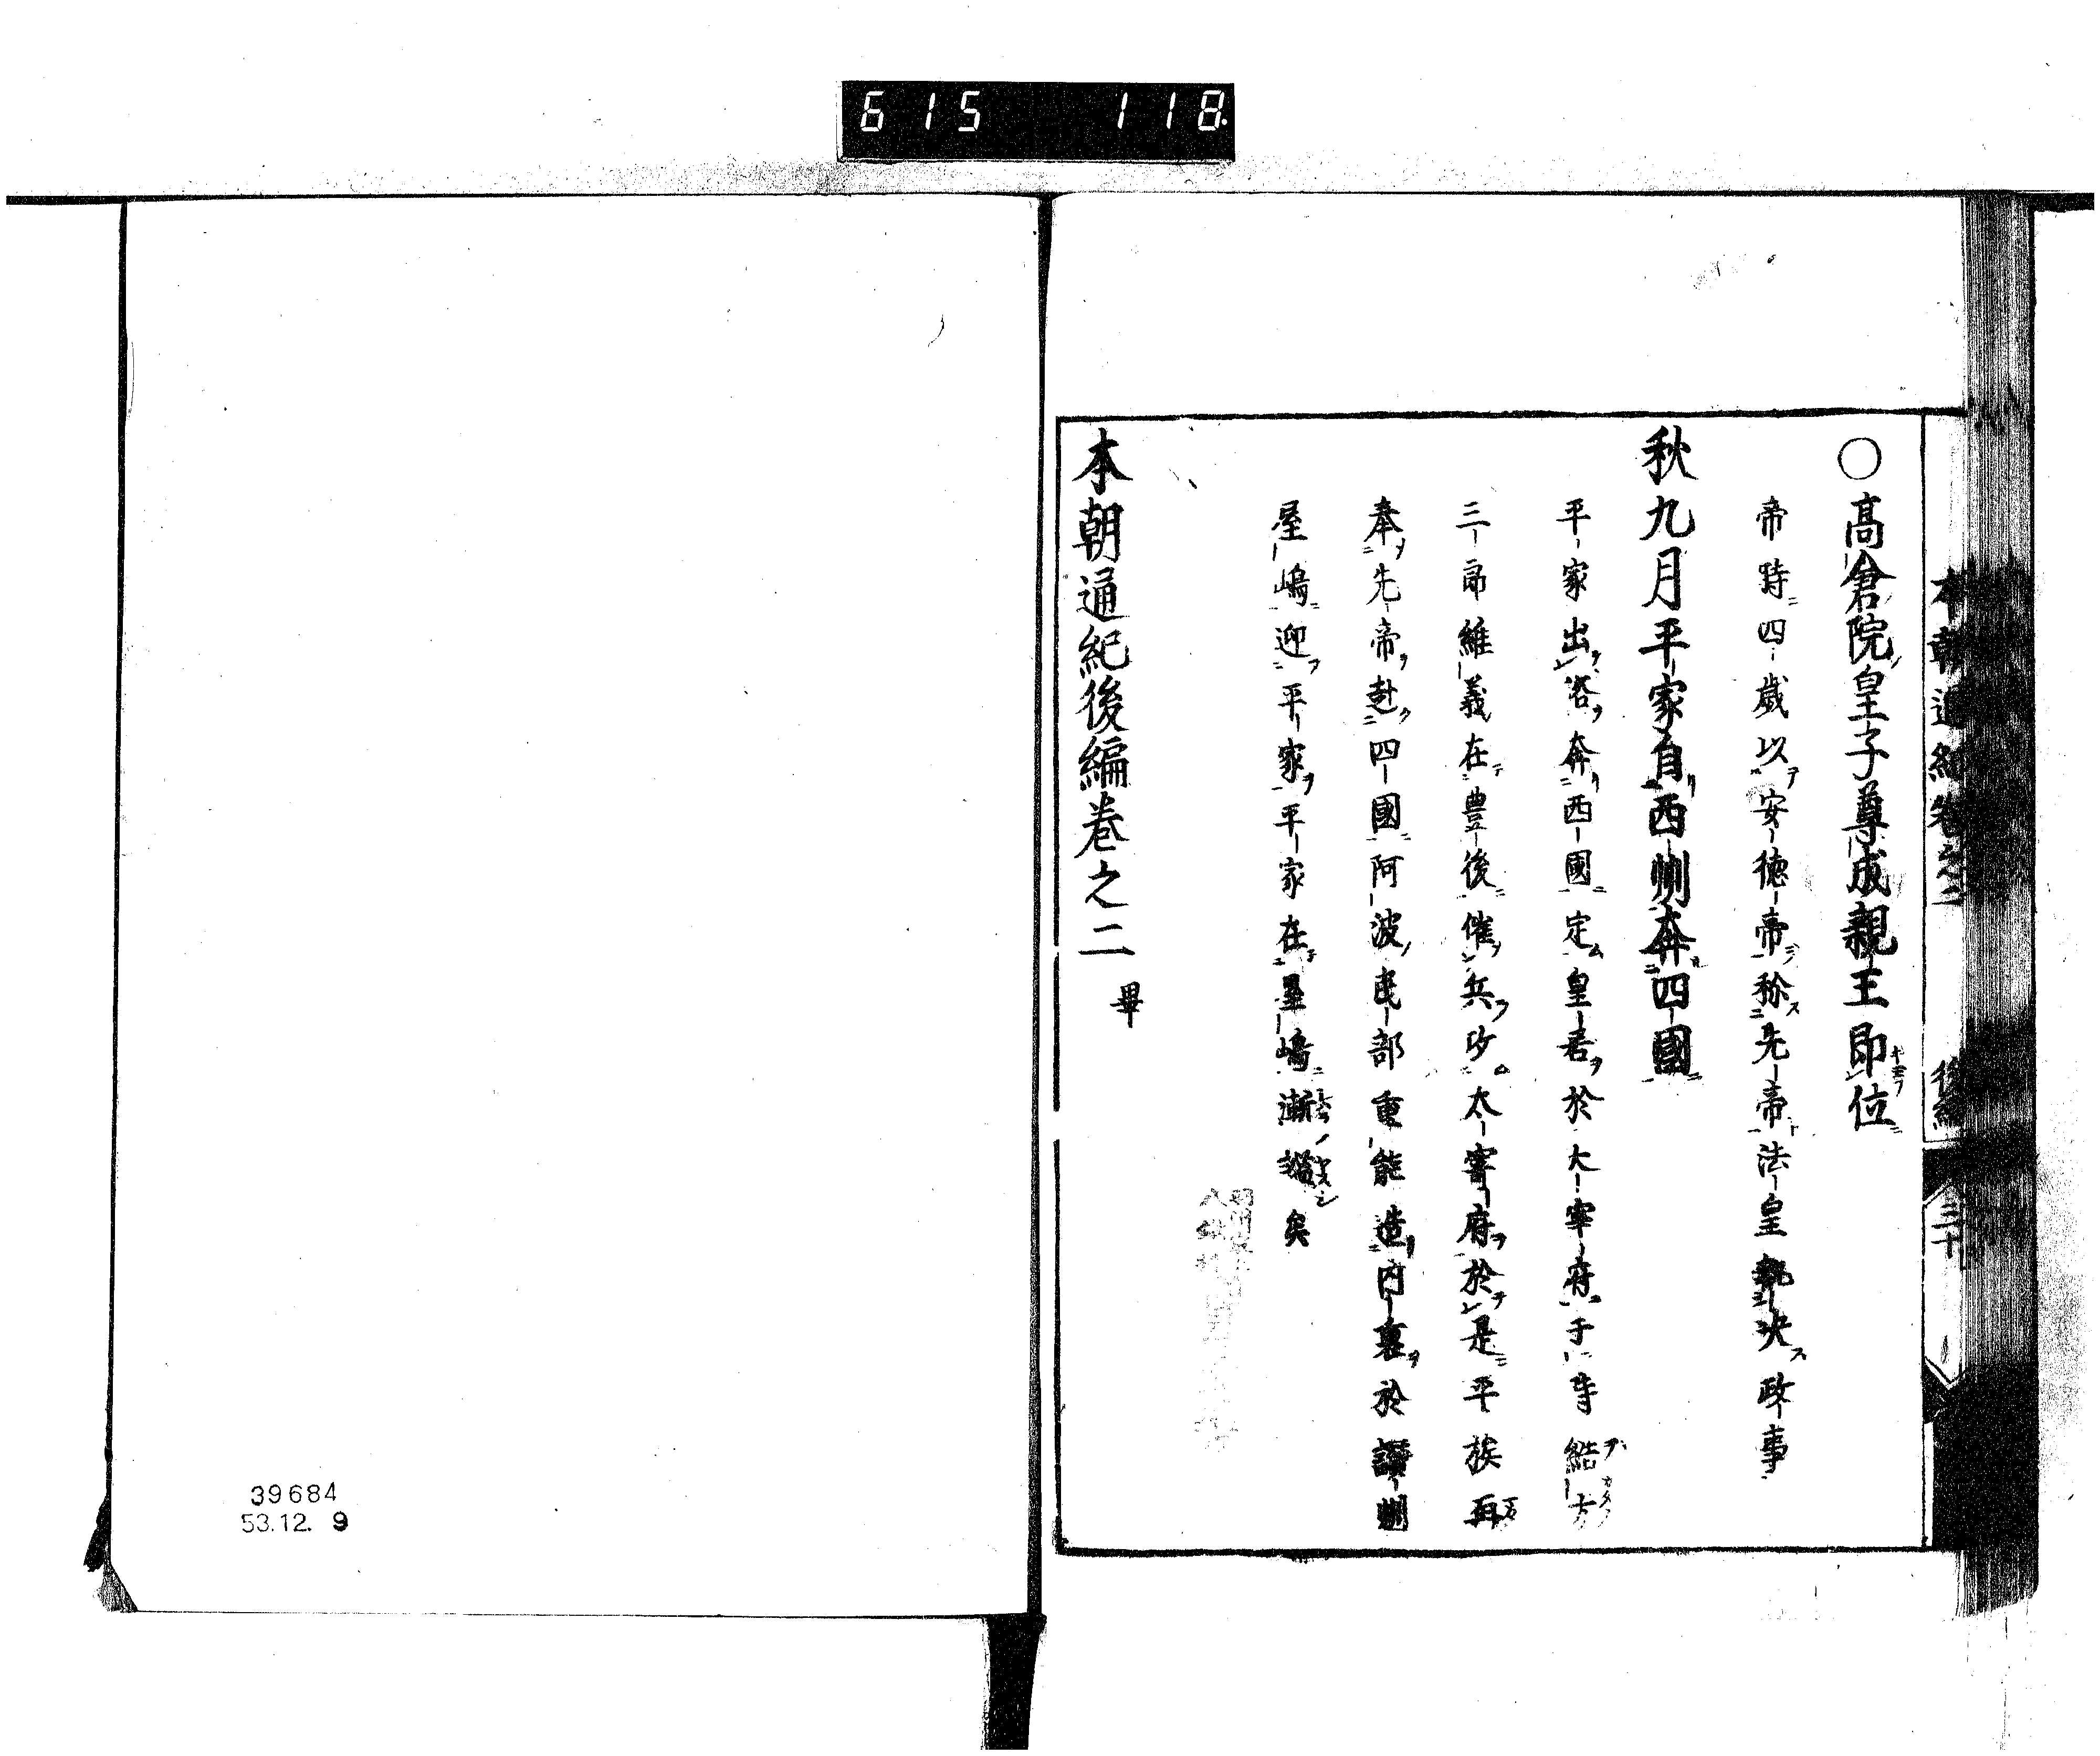 615 118
本朝通紀卷之二 後編 三十
○高倉院皇子尊成親王即位
帝時四歳以安-德-帝称先-帝法-皇執-决政-事
秋九月平-家自西-州奔四-國
平-家出洛奔西-國定皇-居於大-宰-府于時緒-方
三-郎維-義在豊-後催兵攻太-宰-府於是平族再
奉先-帝赴四-國阿-波民-部重-能造内-裏於讃-州
屋-嶋迎平-家平-家在屋-嶋漸 矣
本朝通紀後編巻之二 畢
39684
53.12. 9